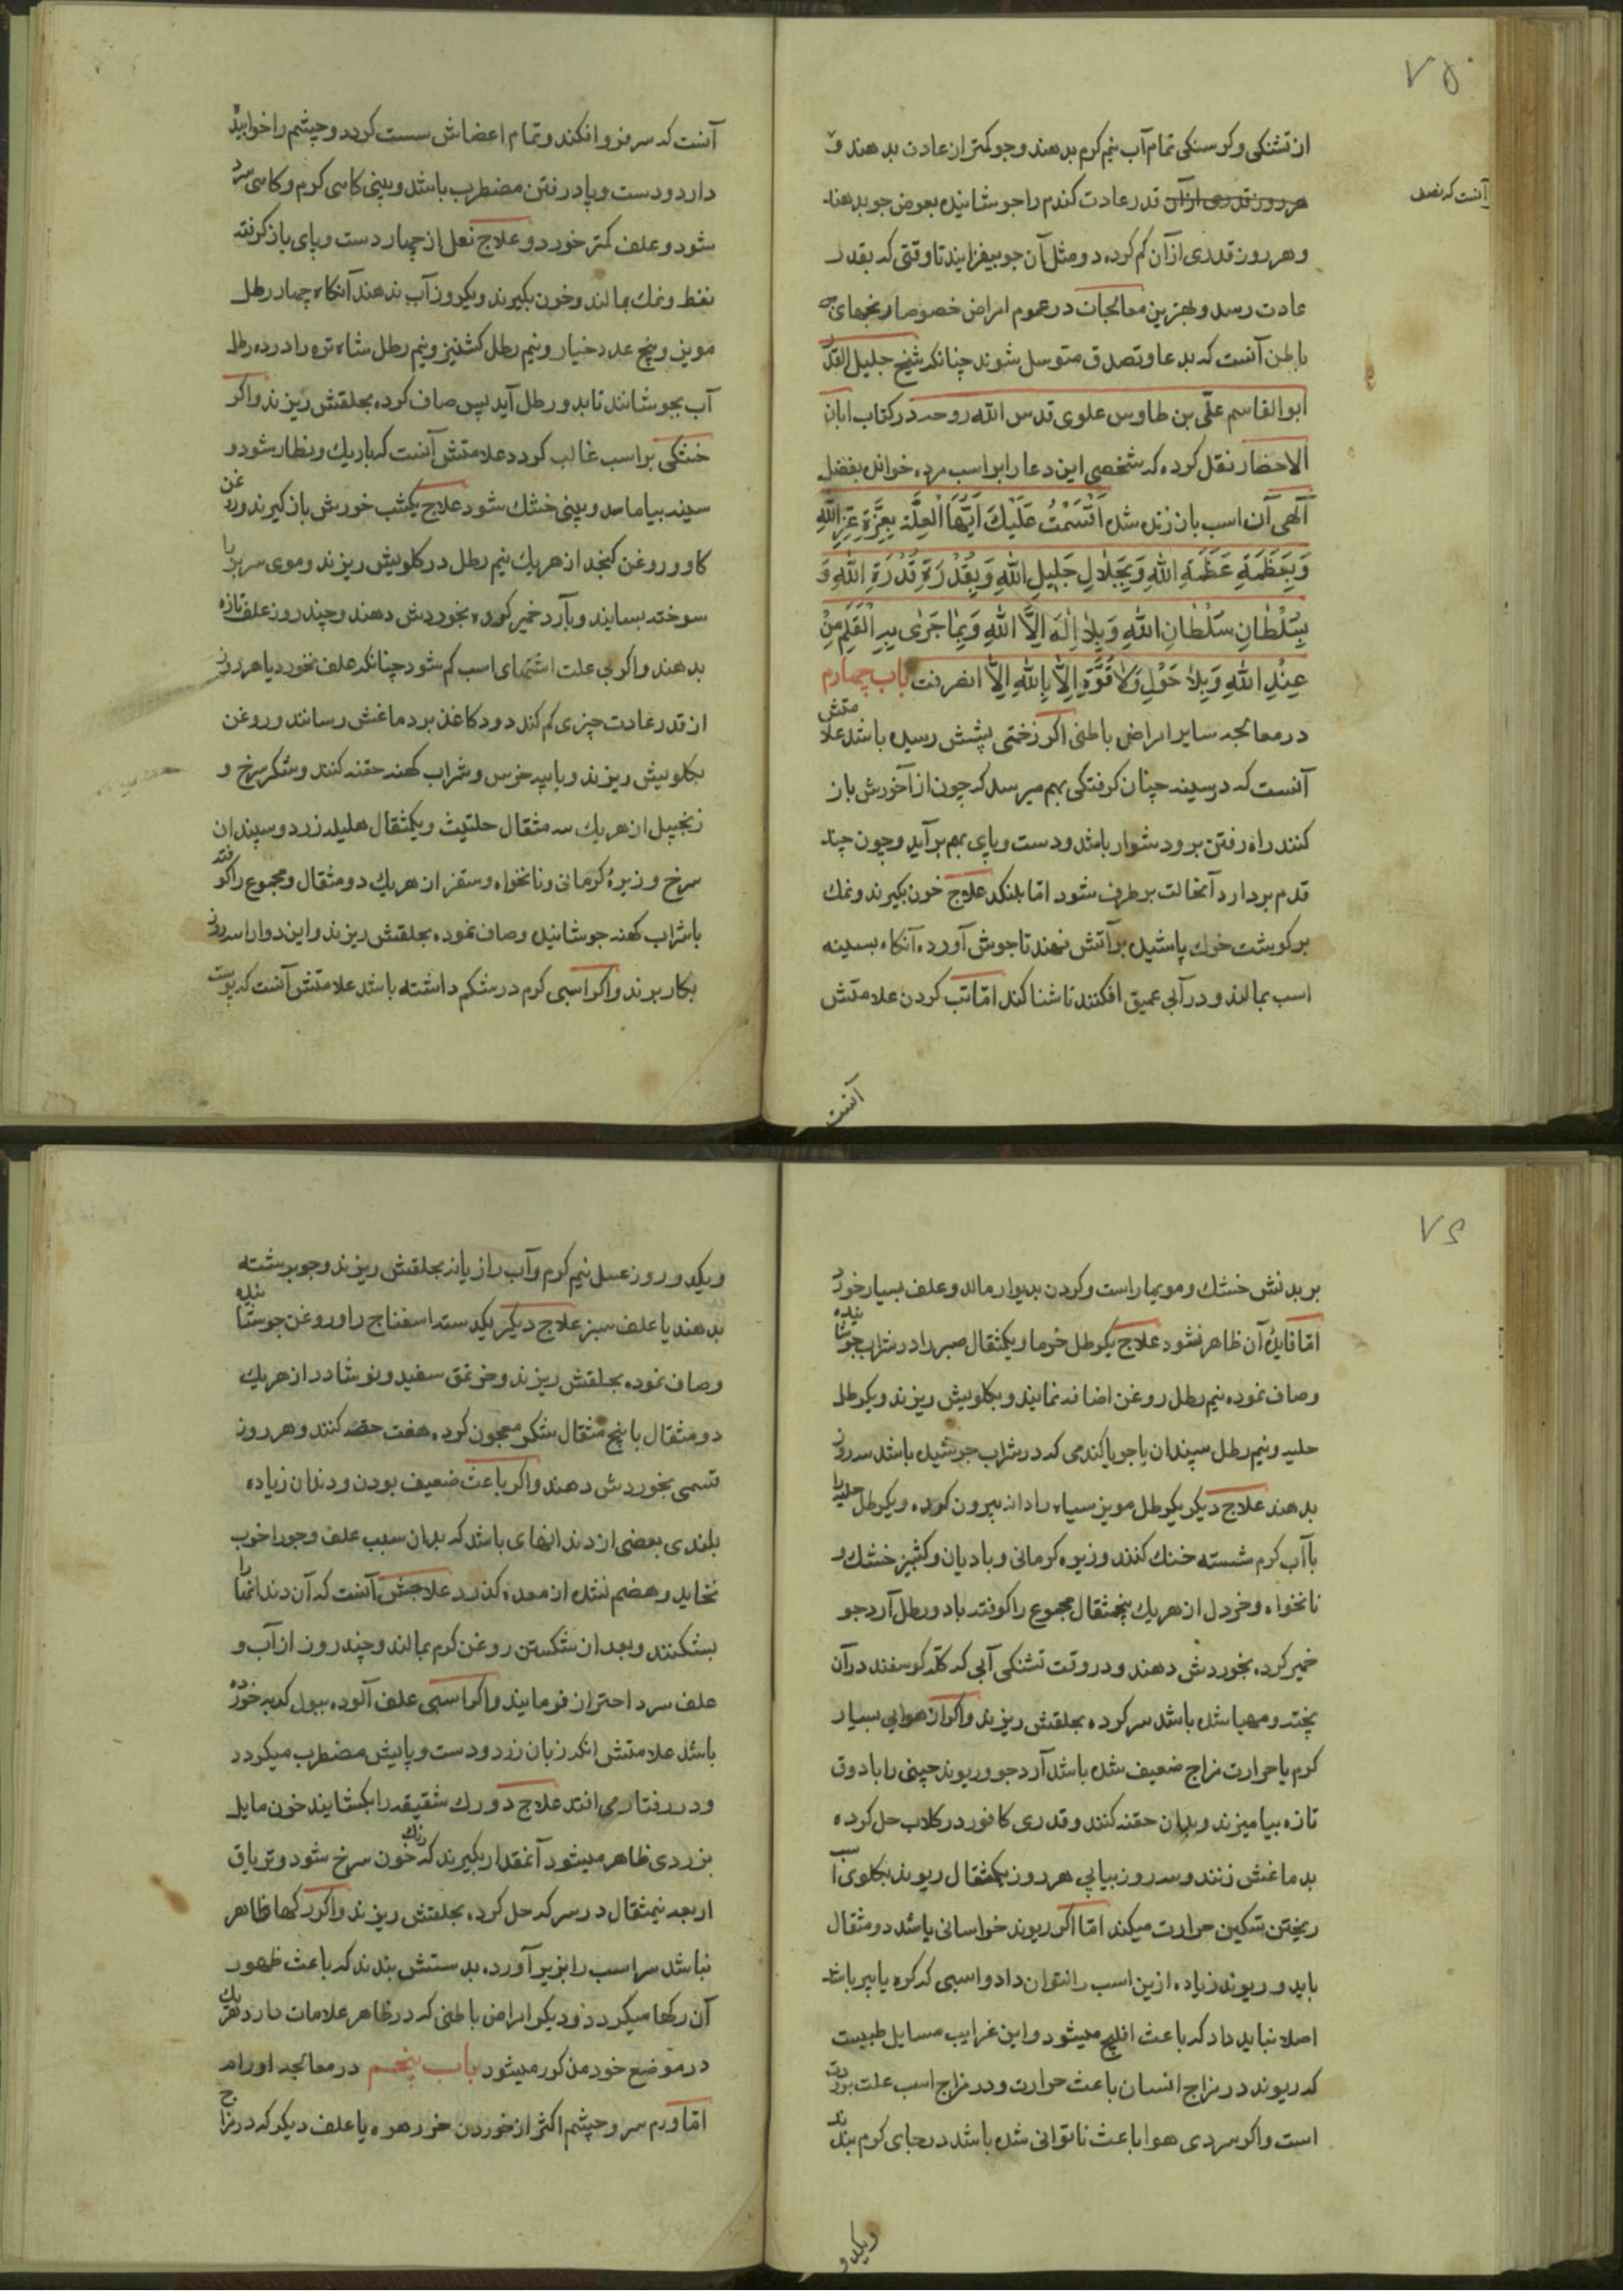 ۷۵
از تشنکی و کرسنکی تمام آب نیم کرم بدهند و جو کمتر از عادت بدهند و
هر روز قدری از آن قدر عادت کندم را جوشانیده بعوض جو بدهند
آنست که نصد
و هر روز قدری از آن کم کرده و مثل آن جو بیفزایند تا وقتی که بقدر
عادت رسد و بهترین معالجات در عموم امراض خصوصا رنجهای
باطن آنست که بدعا و تصدق متوسل شوند چنانکه شیخ جلیل القدر
ابو القاسم علی بن طاوس علوی قدس الله روحه در کتاب امان
الاخطار نقل کرده که شخصی این دعا را بر اسب مرده خواند بفضل
الهی آن اسب باز زنده شد اَقْسَمْتُ عَلَیْكَ اَیَّتُهَا الْعِلَّة بِعِزَّةِ عِزَّ اللهِ
وَ بِعَظَمَةِ عَظَمَةِ اللهِ وَ بِجَلَالِ جَلِیلِ اللهِ وَ بِقُدْرَةِ قُدْرَةِ اللهِ وَ
بِسُلْطَانِ سُلْطَانِ اللهِ وَ بِلَا اِلٰهَ اِلَّا اللهِ وَ بِمَا جَرٰی بِهِ الْقَلَمِ مِنْ
عِنْدِ اللهِ وَ بِلَا حَوْلَ وَلَا قُوَّةَ اِلَّا بِاللهِ اِلَّا انصرفت باب چهارم
در معالجه سایر امراض باطنی اکر زخمتی بشش رسیده باشد علامتش
آنست که در سینه چنان کرفتکی بهم میرسد که چون از آخورش باز
کنند راه رفتن برو دشوار باشد و دست و پای بهم بر آید و چون چند
قدم بردارد آنحالت برطرف شود اما بلنکد علاج خون بکیرند و نمك
بر کوشت خوك پاشیده بر آتش نهند تا جوش آورد آنکاه بسینه
اسب بمالند و در آبی عمیق افکنند تا شنا کند اما تب کردن علامتش
آنست
آنست که سر فرو افکند و تمام اعضاش سست کردد و چشم را خوابیده
دارد و دست و پا در رفتن مضطرب باشد و بینی کاهی کرم و کاهی سرد
شود و علف کمتر خورد و علاج نعل از چهار دست و پای باز کرفته
نفط و نمك بمالند و خون بکیرند و یکروز آب ندهند آنکاه چهار رطل
مویز و پنج عدد خیار و نیم رطل کشنیز و نیم رطل شاه تره را در ده رطل
آب بجوشانند تا بدو رطل آید پس صاف کرده بحلقش ریزند و اکر
خشکی بر اسب غالب کردد علامتش آنست که باریك و نطار شود و
سینه بیاماسد و بینی خشك شود علاج یکشب خورش باز کیرند و روغن
کاو و روغن کنجد از هر یك نیم رطل در کلویش ریزند و موی سر بز را
سوخته بسایند و بآرد خمیر کرده بخوردش دهند و چند روز علف تازه
بدهند و اکر بی علت اشتهای اسب کم شود چنانکه علف نخورد یا هر روز
از قدر عادت چیزی کم کند دود کاغذ بر دماغش رسانند و روغن
بکلویش ریزند و یا پیه خرس و شراب کهنه حقنه کنند و شکر سرخ و
زنجبیل از هر یك سه مثقال حلتیث و یکمثقال هلیله زرد و سپندان
سرخ و زیرهٔ کرمانی و نانخواه و ستفز از هر یك دو مثقال و مجموع را کوفته
با شراب کهنه جوشانیده و صاف نموده بحلقش ریزند و این دوا را سه روز
بکار برند و اکر اسبی کرم در شکم داشته باشد علامتش آنست که پوست
۷۶
بر بدنش خشك و مویها راست و کردن بدیوار مالد و علف بسیار خورد
اما فایدهٔ آن ظاهر نشود علاج یکرطل خرما و یکمثقال صبر را در شراب جوشانیده
و صاف نموده نیم رطل روغن اضافه نمایند و بکلویش ریزند و یکرطل
حلبه و نیم رطل سپندان با جو یا کندمی که در شراب جوشیده باشد سه روز
بدهند علاج دیکر یکرطل مویز سیاه را دانه بیرون کرده و یکرطل حلبه را
با آب کرم شسته خنك کنند و زیره کرمانی و بادیان و کشنیز خشك و
نانخواه و خردل از هر یك پنجمثقال مجموع را کوفته با دو رطل آرد جو
خمیر کرده بخوردش دهند و در وقت تشنکی آبی که کله کوسفند در آن
پخته و مهیا شده باشد سرد کرده بحلقش ریزند و اکر از هوای بسیار
کرم یا حرارت مزاج ضعیف شده باشد آرد جو و ریوند چینی را با دوق
تازه بیامیزند و بدان حقنه کنند و قدری کافور در کلاب حل کرده
بدماغش زنند و سه روز بیاپی هر روز یکمثقال ریوند بکلوی اسب
ریختن تسکین حرارت میکند اما اکر ریوند خراسانی باشد دو مثقال
باید و ریوند زیاده ازین اسب را نتوان داد و اسبی که کره یا پیر باشد
اصلا نباید داد که باعث افلیج میشود و این غرایب مسایل طبیست
که ریوند در مزاج انسان باعث حرارت و در مزاج اسب علت برودت
است و اکر سردی هوا باعث ناتوانی شده باشد در جای کرم بندند
ویکدو
و یکدو روز عسل نیم کرم و آب رازیانه بحلقش ریزند و جو برشته
بدهند یا علف سبز علاج دیکر یکدسته اسفناج را و روغن جوشانیده
و صاف نموده بحلقش ریزند و خربق سفید و نوشادر از هر یك
دو مثقال با پنج مثقال شکر معجون کرده هفت حصه کنند و هر روز
قسمی بخوردش دهند و اکر باعث ضعیف بودن و دندان زیاده
بلندی بعضی از دندانهای باشد که بدان سبب علف و جو را خوب
نخاید و هضم نشده از معده کذرد علاجش آنست که آن دندانها را
بشکنند و بعد از شکستن روغن کرم بمالند و چند روز از آب و
علف سرد احتراز فرمایند و اکر اسبی علف آلوده ببول کربه خورده
باشد علامتش انکه زبان زرد و دست و پایش مضطرب میکردد
و در رفتار می افتد علاج دو رك شقیقه را بکشایند خون مایل
بزردی ظاهر میشود آنمقدار بکیرند که رنك خون سرخ شود و تریاق
اربعه نیمثقال در سرکه حل کرده بحلقش ریزند و اکر رکها ظاهر
نباشد سر اسب را بزیر آورده بدستش بندند که باعث ظهور
آن رکها میکردد و دیکر امراض باطنی که در ظاهر علامات دارد هر یك
در موضع خود مذکور میشود باب پنجم در معالجه اورام
اما ورم سر و چشم اکثر از خوردن خرزهره یا علف دیکر که در مزاج